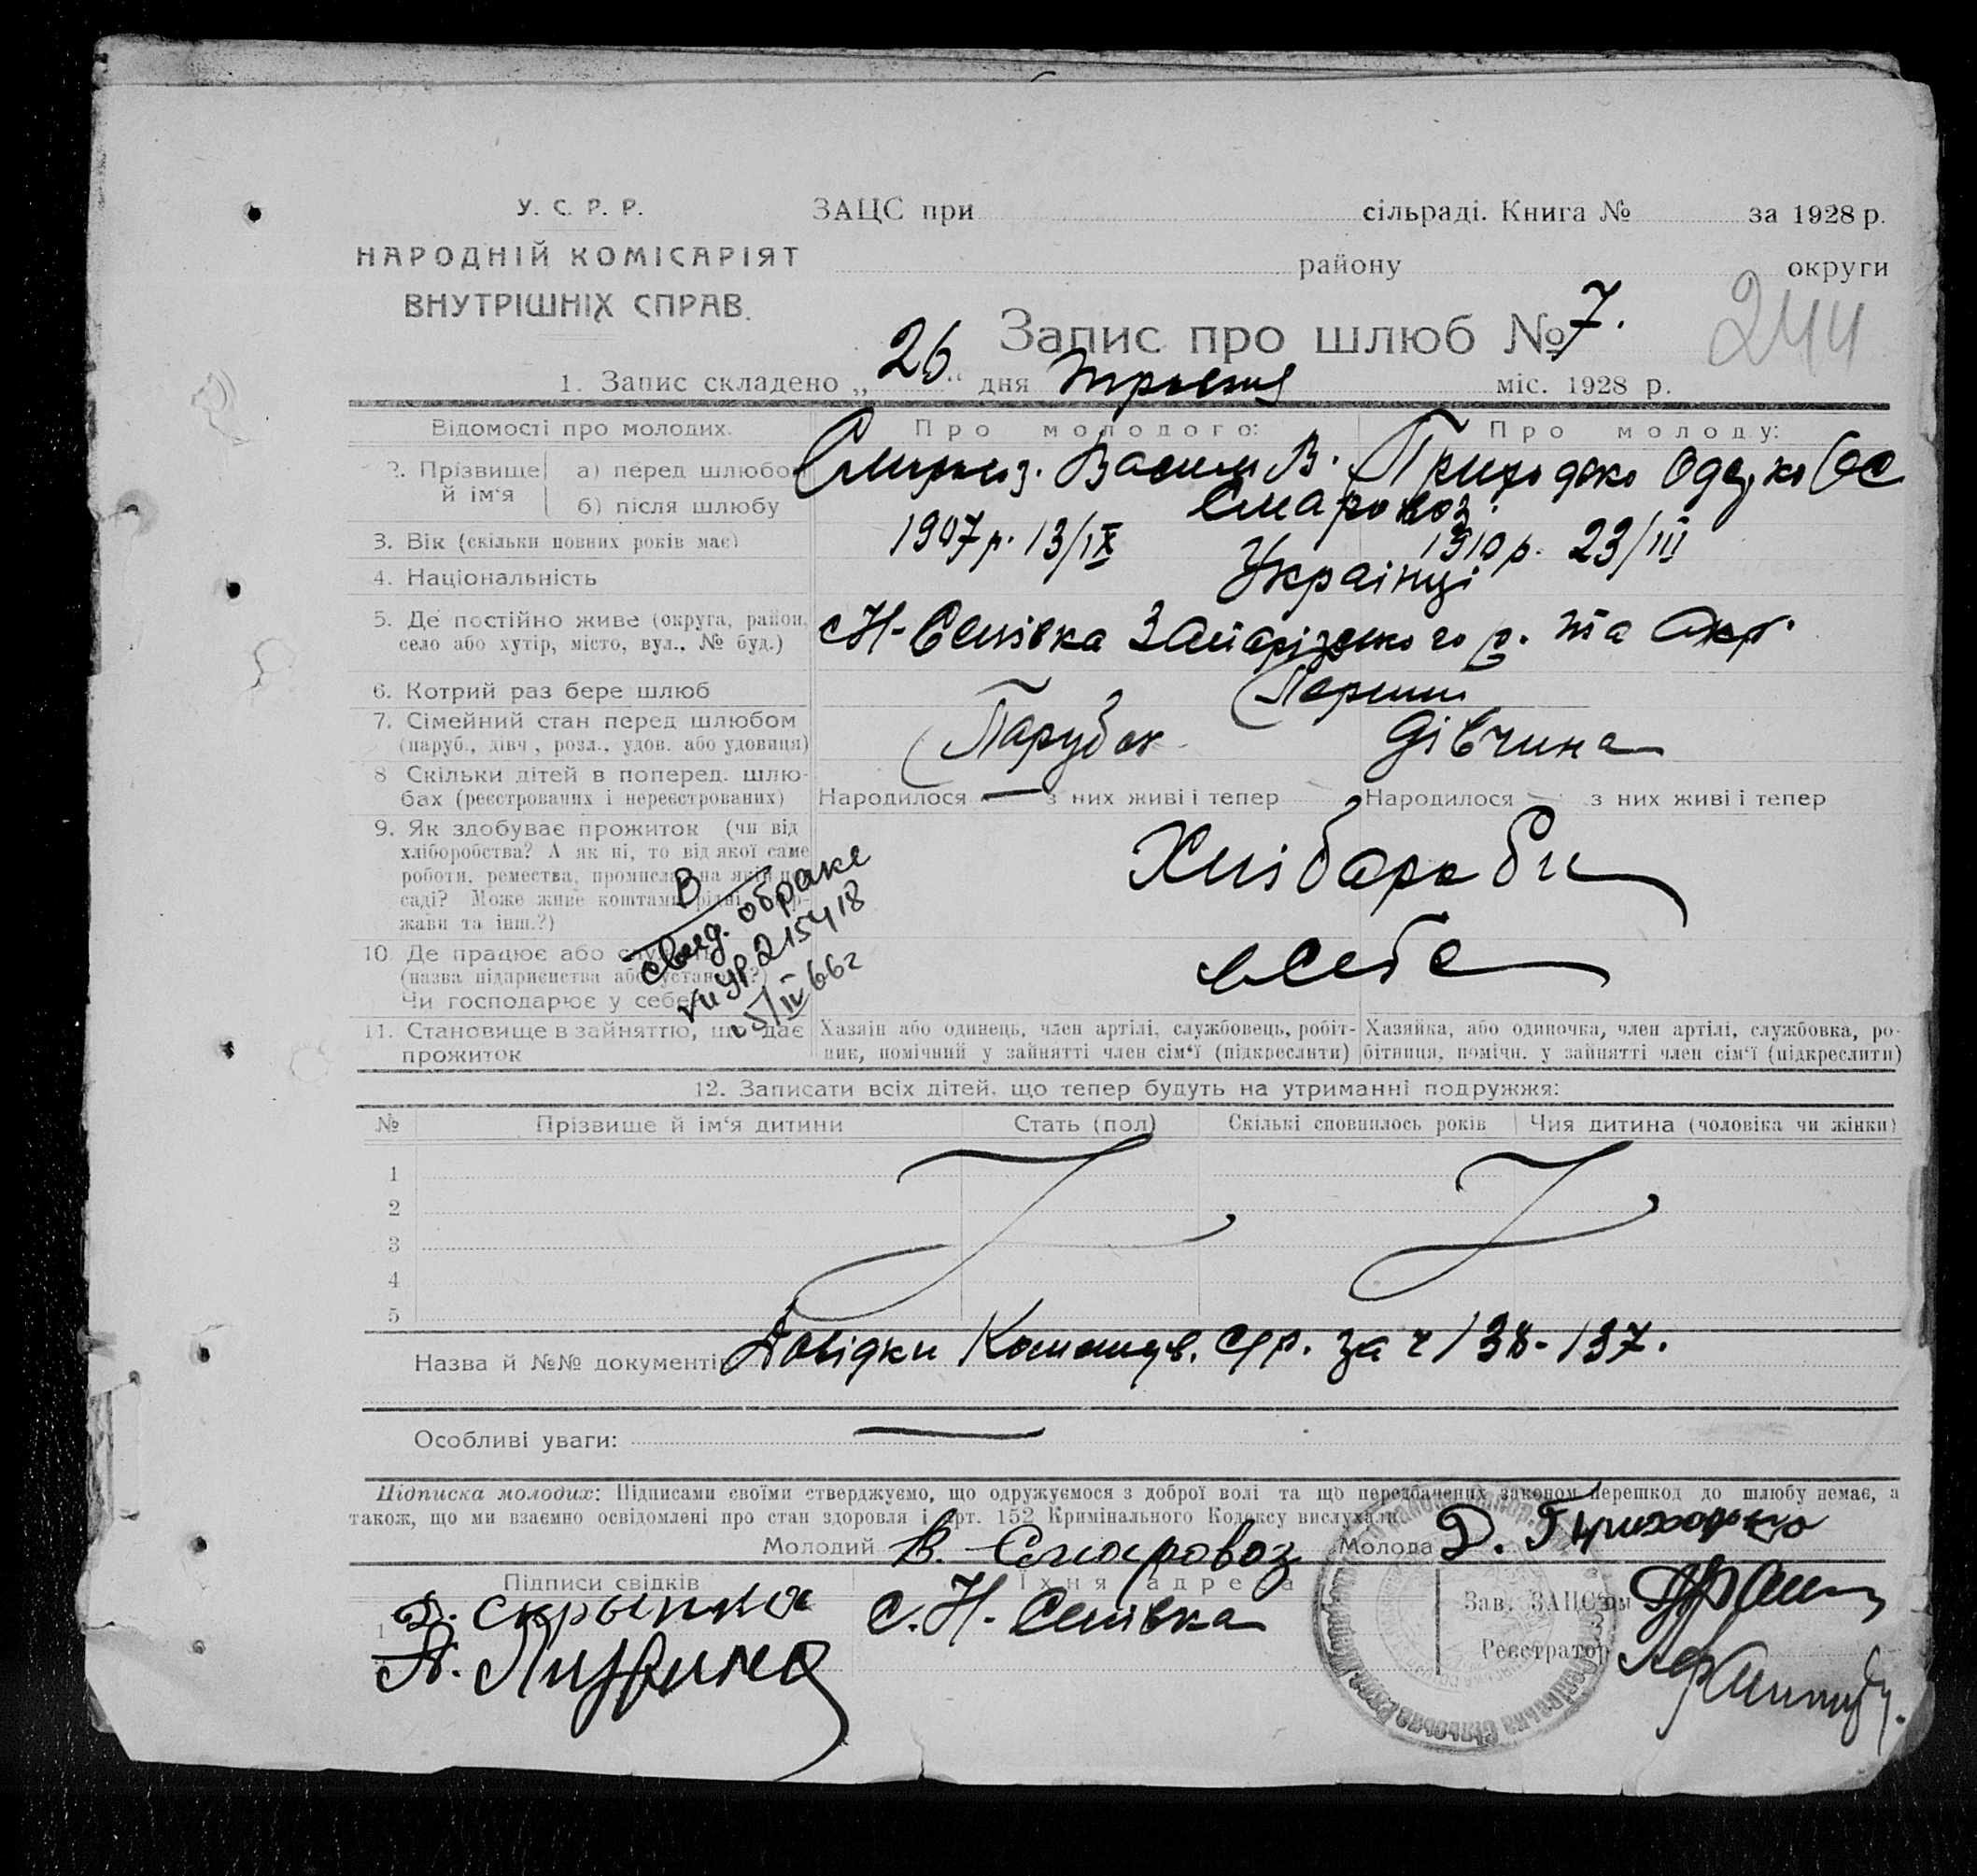 У. С. Р. Р.
НАРОДНІЙ КОМІСАРІЯТ
ВНУТРІШНІХ СПРАВ.
ЗАЦС при сільраді. Книга № за 1928 р.
району округи
Запис про шлюб № 7.
244
1. Запис складено „26“ дня травня міс. 1928 р.
Відомості про молодих. Про молодого: Про молоду:
2. Прізвище й ім'я
а) перед шлюбо Василь В. Приходько
б) після шлюбу Смаровоз
3. Вік (скільки повних років має) 1907 р. 13/IX 1910 р. 23/III
4. Національність Українці
5. Де постійно живе (округа, район,
село або хутір, місто, вул., № буд.) с Н-Єлнівка Запорізького р. та Окр.
6. Котрий раз бере шлюб Перший
7. Сімейний стан перед шлюбом
(паруб., дівч., розл., удов. або удовиця) Парубок дівчина
8 Скільки дітей в поперед. шлю-
бах (реєстрованих і нереєстрованих) Народилося — з них живі і тепер Народилося — з них живі і тепер
9. Як здобуває прожиток (чи від
хліборобства? А як ні, то від якої саме
роботи, ремества, промисла, на якій по
саді? Може живе коштами
жави та інш.?)
Хліборобы
10. Де працює або
(назва підприємства або установи?)
Чи господарює у себе
в себе
В
свид. о браке
УР 215418
5/IV 66 г
11. Становище в зайняттю, що дає
прожиток
Хазяїн або одинець, член артілі, службовець, робіт-
ник, помічний у зайнятті член сім'ї (підкреслити)
Хазяйка, або одиночка, член артілі, службовка, ро-
бітниця, помічн. у зайнятті член сім'ї (підкреслити)
12. Записати всіх дітей, що тепер будуть на утриманні подружжя:
№ Прізвище й ім'я дитини Стать (пол) Скількі сповнилось років Чия дитина (чоловіка чи жінки)
1
2
3
4
5
Назва й №№ документі Довідки с/р. за ч 138-137.
Особливі уваги: —
Підписка молодих: Підписами своїми стверджуємо, що одружуємося з доброї волі та що передбачених законом перешкод до шлюбу немає, а
також, що ми взаємно освідомлені про стан здоровля і арт. 152 Кримінального Кодексу вислухали.
Молодий В. Смаровоз Молода Д. Приходько
Підписи свідків Їхня адреса
1 Д. Скрыпка с. Н-Єлнівка
Зав. ЗАЦС'ом
Реєстратор